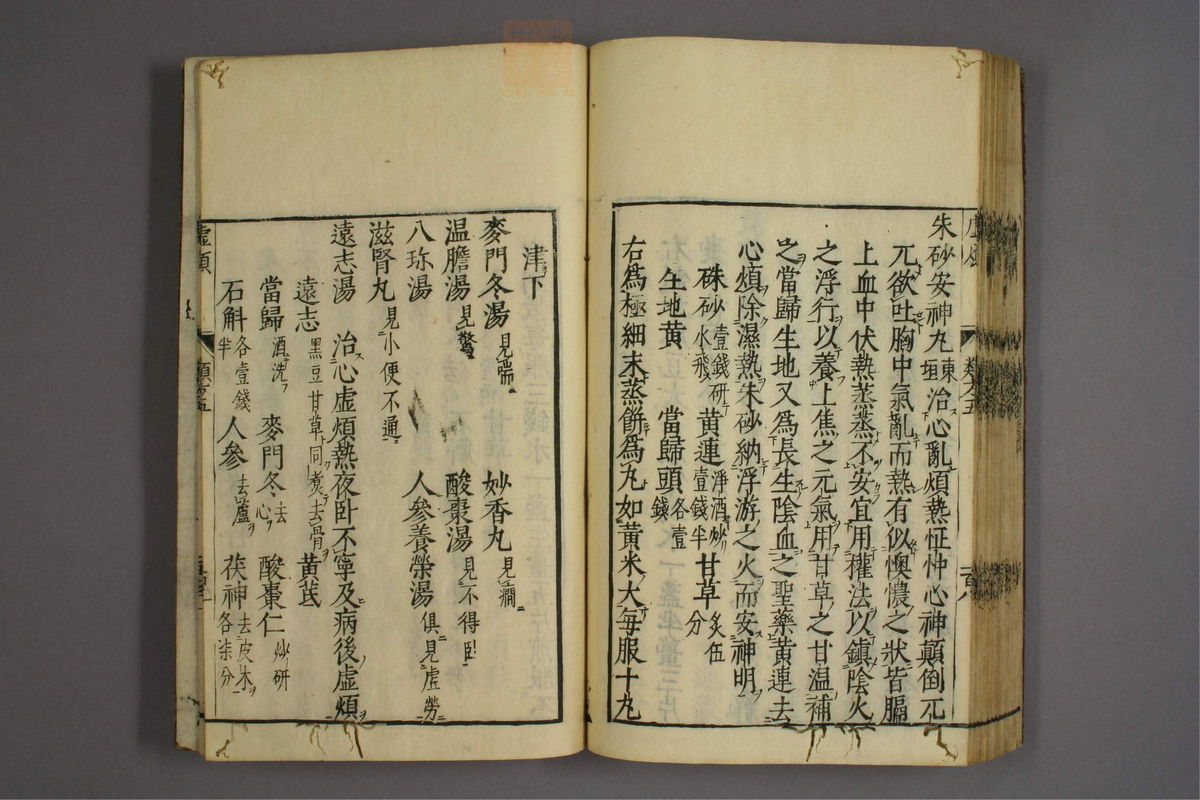 朱砂安神丸東垣治心亂煩熱怔忡心神顛倒兀
兀欲吐胸中氣亂而熱有似懊憹之狀皆膈
上血中伏熱蒸蒸不安宜用權法以鎮陰火
之浮行以養上焦之元氣用甘草之甘温補
之當歸生地又爲長生陰血之聖藥黄連去
心煩除濕熱朱砂納浮游之火而安神明
硃砂壹錢研水飛 黄連淨酒炒壹錢半 甘草炙伍分
生地黄 當歸頭各壹錢
右爲極細末蒸餅爲丸如黄米大毎服十九
津下
麥門冬湯見喘 妙香丸見癇
温膽湯見驚 酸棗湯見不得臥
八珎湯 人參養榮湯俱見虚勞
滋腎丸見小便不通
遠志湯 治心虚煩熱夜卧不寧及病後虚煩
遠志黑豆甘草同煑去骨 黄茋
當歸酒洗 麥門冬去心 酸棗仁炒研
石斛各壹錢半 人參去蘆 茯神去皮木各柒分